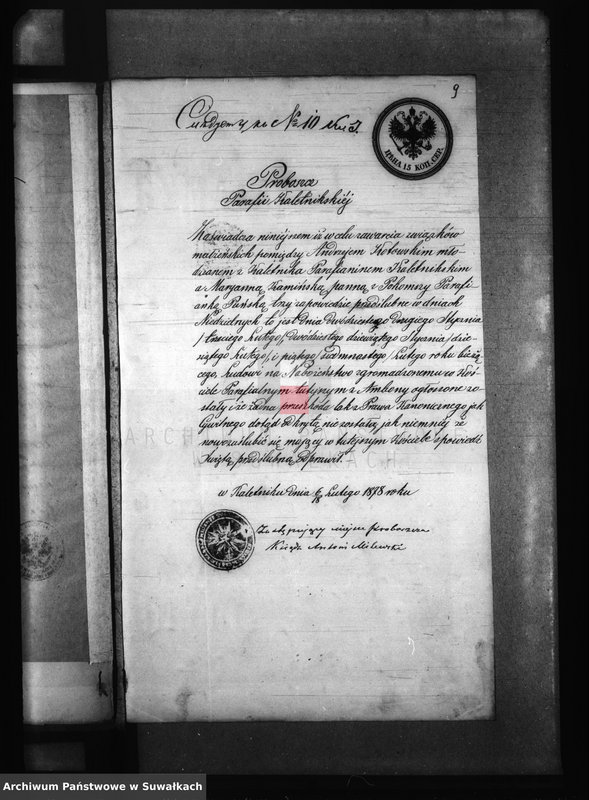 9
№ 10
ЦѢНА 15 КОП. СЕР.
Proboszcz
Parafii Kaletnikskiéj
Zaświadcza niniéjszem iż w celu zawarcia związków
małżeńskich pomiędzy Andrzejem Kotowskim mło-
dzianem z Kaletnika Parafianinem Kaletnikskim
a Maryanną Kamińską panną z Pohomery Parafi-
anką Puńską, trzy zapowiedzie przedślubne w dniach
Niedzielnych to jest dnia dwódziestego drugiego Stycznia
/ trzeciego Lutego /, dwódziestego dziewiątego Stycznia / dzie-
siątego Lutego /, i piątego / siedmnastego / Lutego roku bieżą-
cego, Ludowi na Nabożeństwo zgromadzonemu w Koś-
ciele Parafialnym tutejszym z Ambony ogłoszone zo-
stały i że żadna przeszkoda tak z Prawa Kanonicznego jak
Cywilnego dotąd odkrytą nie została, jak niemniéj że
nowozaślubić się mający w tutejszym Kościele spowiedź
Świętą przedślubną odprawił.
w Kaletniku dnia 6/18 Lutego 1878 roku
Zastępujący miejsce Proboszcza
Ksiądz Antoni Milewski
ARCHIWUM
Archiwum Państwowe w Suwałkach